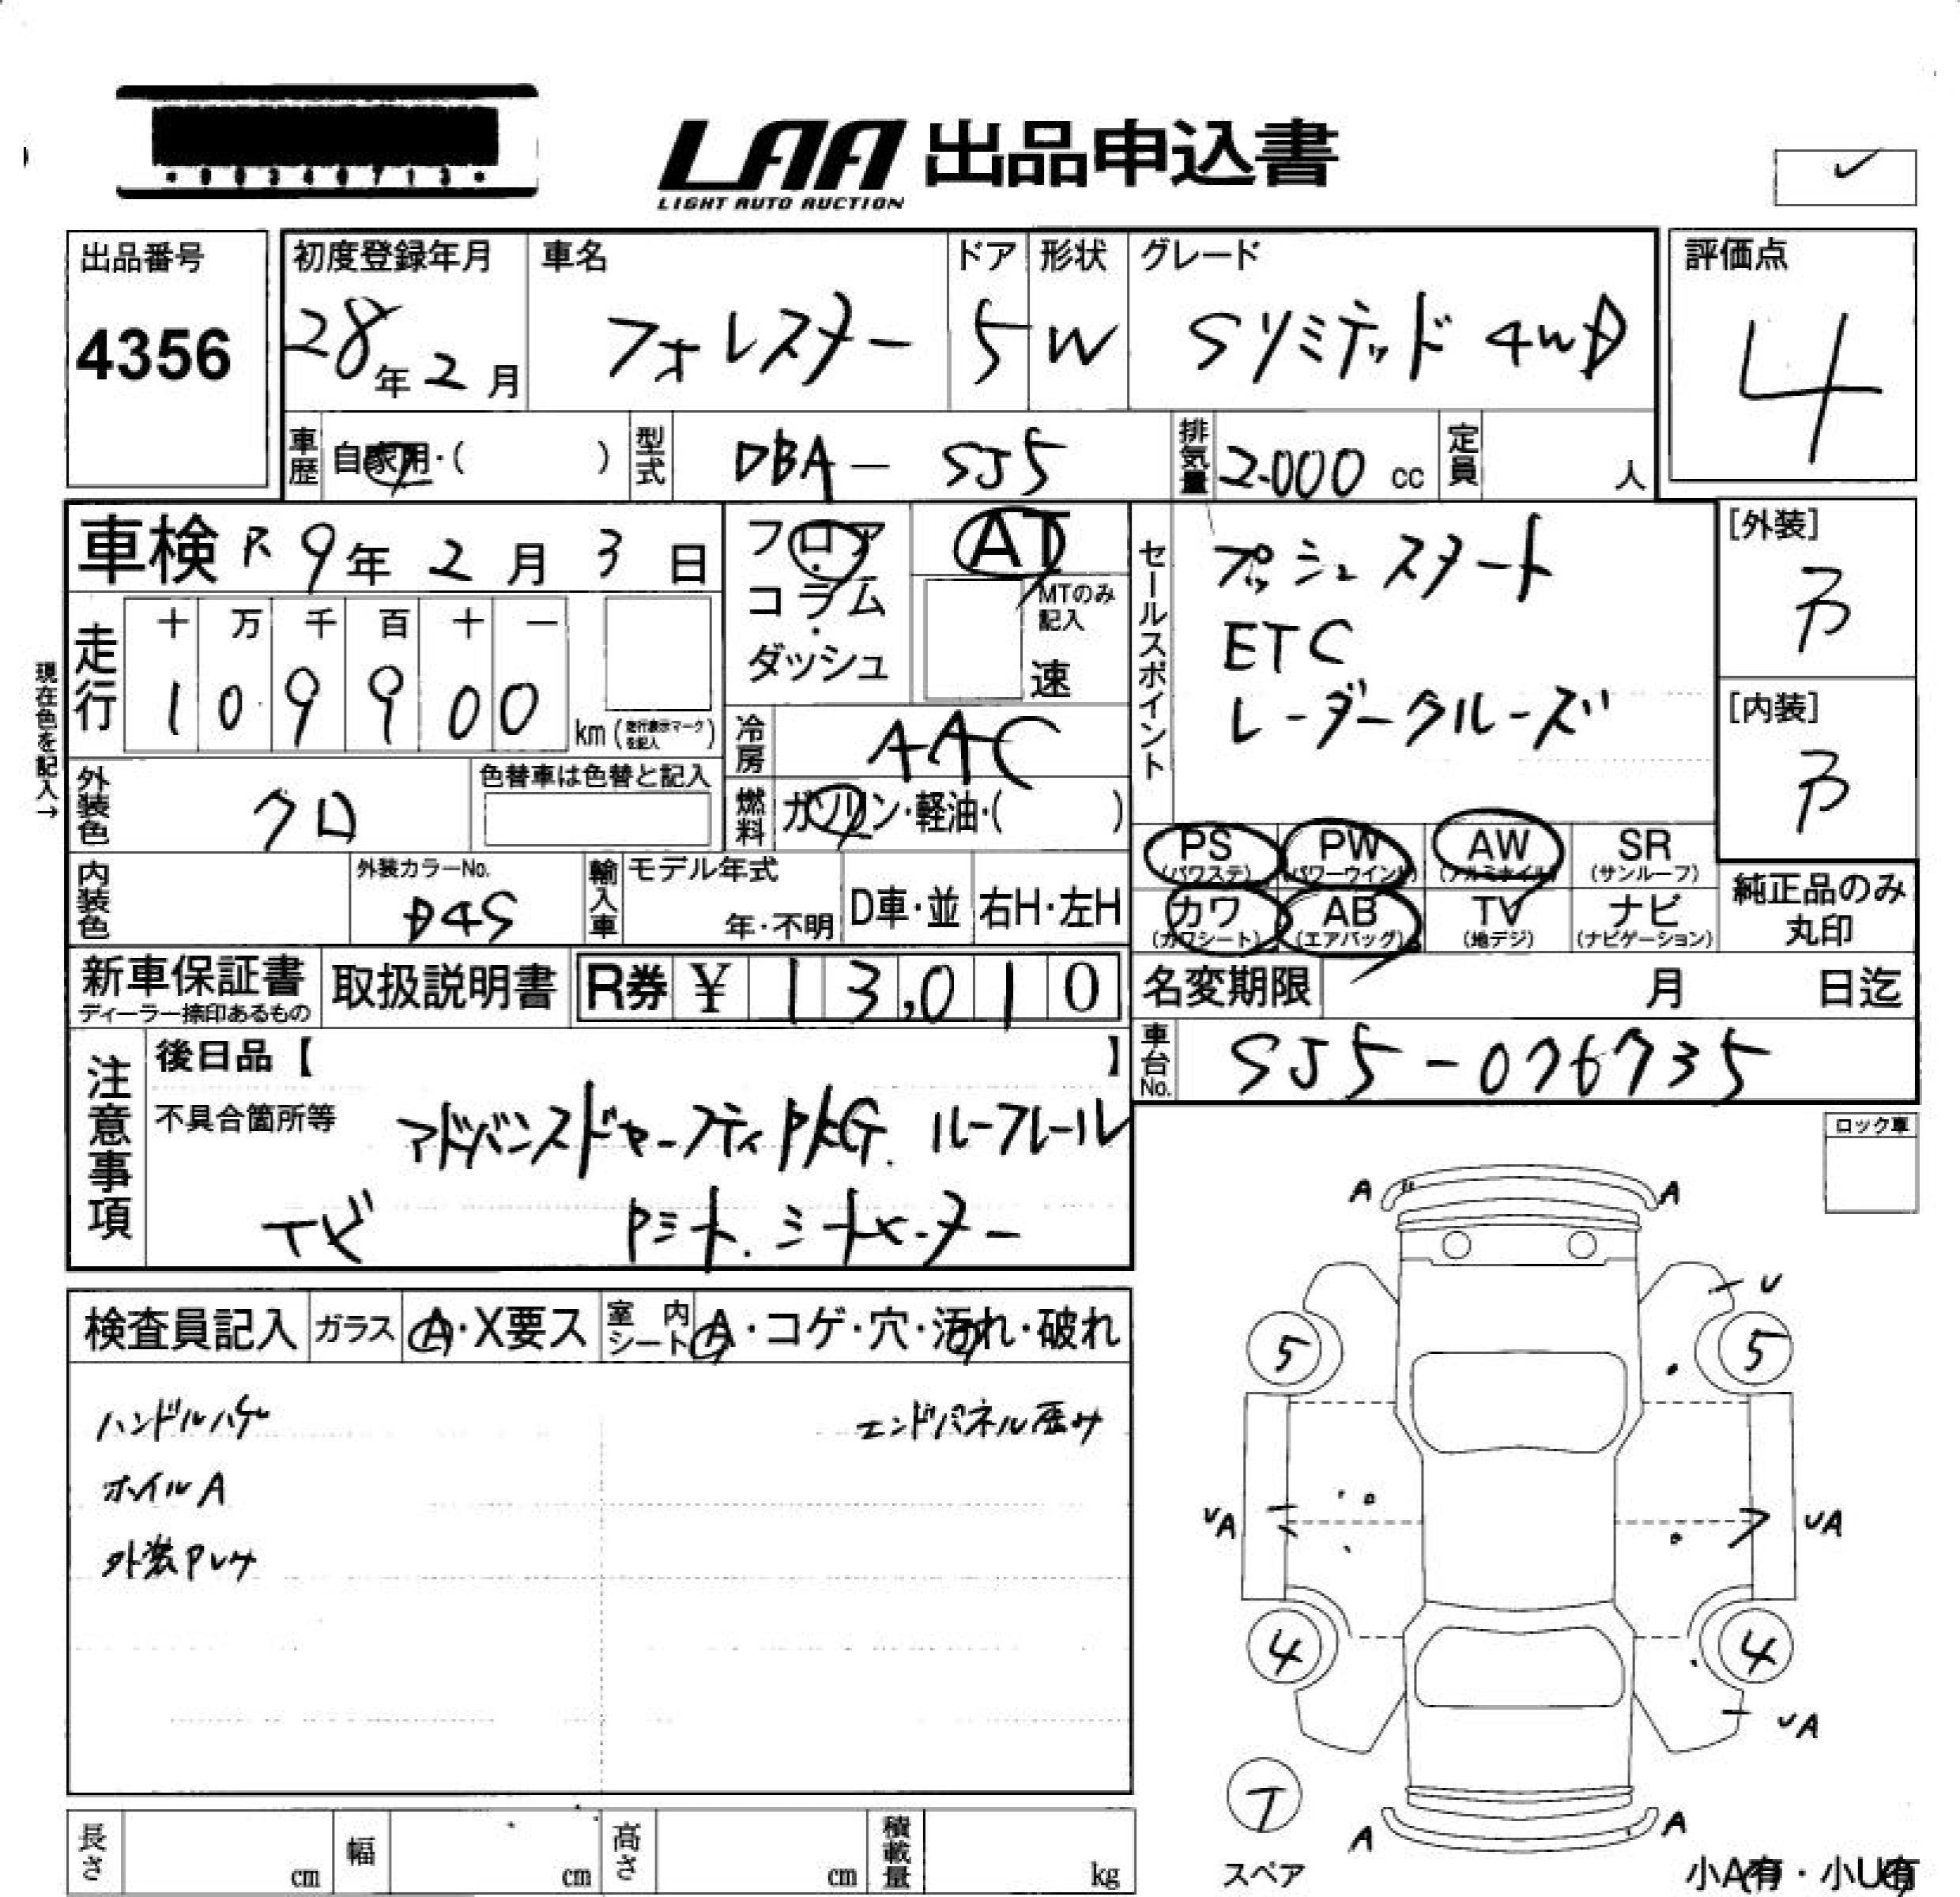 00340713
LAA 出品申込書
LIGHT AUTO AUCTION
出品番号
4356
初度登録年月
28年2月
車名
フォレスター
ドア
5
形状
W
グレード
Sリミテッド 4WD
評価点
4
車歴 自家用・( )
型式 DBA-SJ5
排気量 2.000cc
定員 人
車検 R9年2月3日
フロア・コラム・ダッシュ
AT
MTのみ記入
速
セールスポイント
プッシュスタート
ETC
レーダークルーズ
[外装]
[内装]
現在色を記入→
走行
十 万 千 百 十 一
1 0 9 9 0 0
km(走行表示マークを記入)
冷房 AAC
燃料 ガソリン・軽油・( )
外装色 クロ
色替車は色替と記入
内装色
外装カラーNo.
D4S
輸入車
モデル年式
年・不明
D車・並
右H・左H
PS(パワステ) PW(パワーウインド) AW(アルミホイル) SR(サンルーフ)
カワ(カワシート) AB(エアバッグ) TV(地デジ) ナビ(ナビゲーション)
純正品のみ丸印
新車保証書
ディーラー捺印あるもの
取扱説明書
R券 ¥ 13,010
名変期限 月 日迄
車台No. SJ5-076735
注意事項
後日品【 】
不具合箇所等
アドバンスドセーフティPKG. ルーフレール
ナビ Pシート.シートヒーター
ロック車
検査員記入
ガラス A・X要ス
室内シート A・コゲ・穴・汚れ・破れ
ハンドルハゲ
エンドパネル歪み
ホイルA
A A
U
5 5
UA UA
4 4
UA
T
スペア
A A
小A(有)・小U(有)
長さ cm
幅 cm
高さ cm
積載量 kg